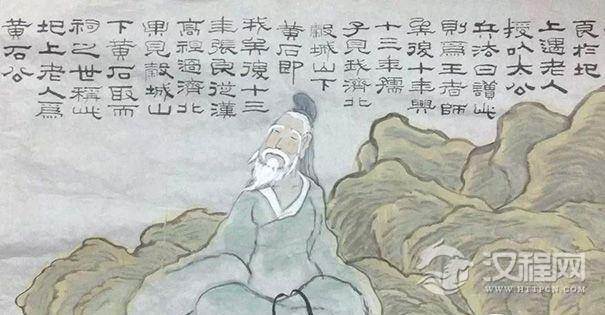 良於圯
上遇老人
授以太公
兵法曰讀此
則為王者師
矣後十年興
十三年孺
子見我濟北
穀城山下
黄石即
我矣後十三
年張良從漢
高祖過濟北
果見穀城山
下黄石取而
祠之世稱此
圯上老人為
黄石公
汉程网
WWW.HTTPCN.COM